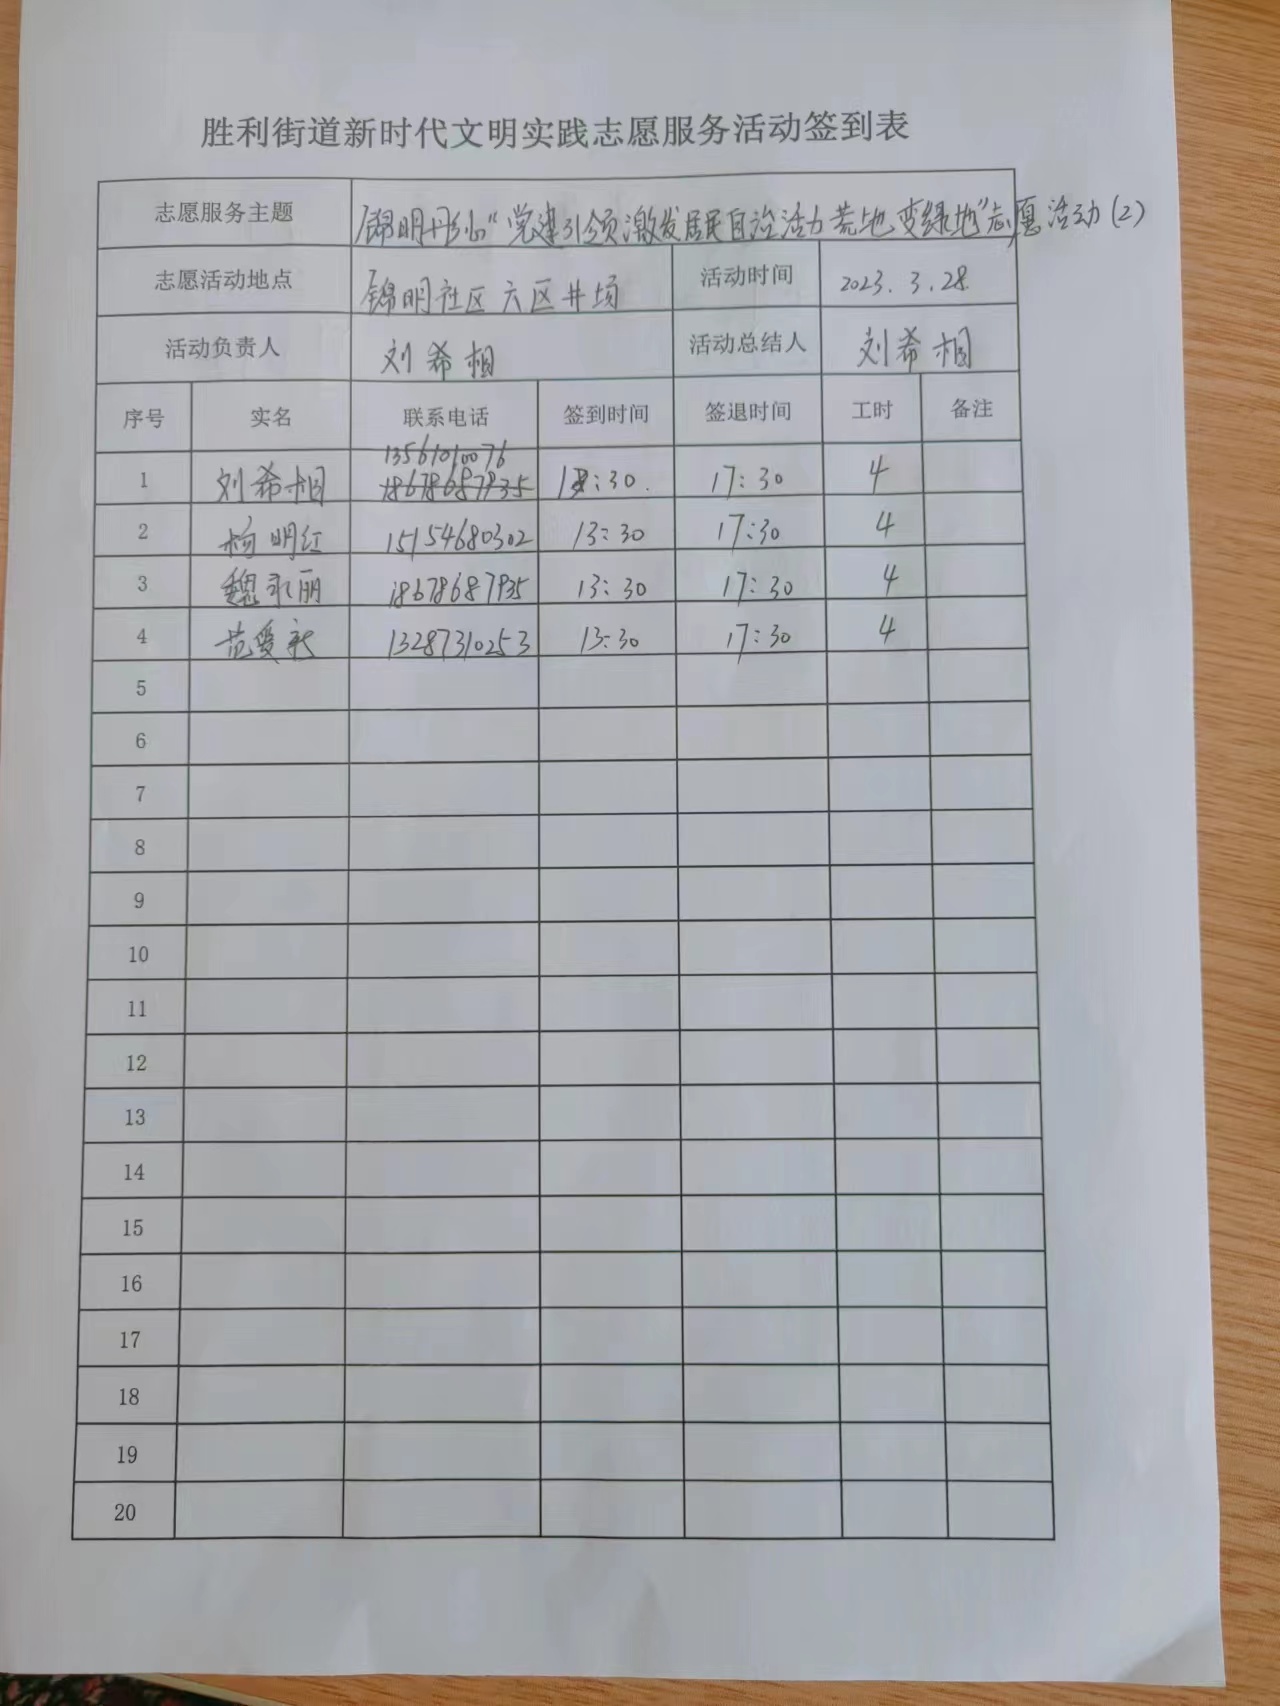 胜利街道新时代文明实践志愿服务活动签到表
志愿服务主题 锦明丹心“党建引领激发居民自治活力荒地变绿地”志愿活动(2)
志愿活动地点 锦明社区六区井场 活动时间 2023.3.28
活动负责人 刘希相 活动总结人 刘希相
序号 实名 联系电话 签到时间 签退时间 工时 备注
13561010076
1 刘希相 18678687935 13:30. 17:30 4
2 杨明红 15154680302 13:30 17:30 4
3 魏永丽 18678687935 13:30 17:30 4
4 范爱新 13287310253 13:30 17:30 4
5
6
7
8
9
10
11
12
13
14
15
16
17
18
19
20